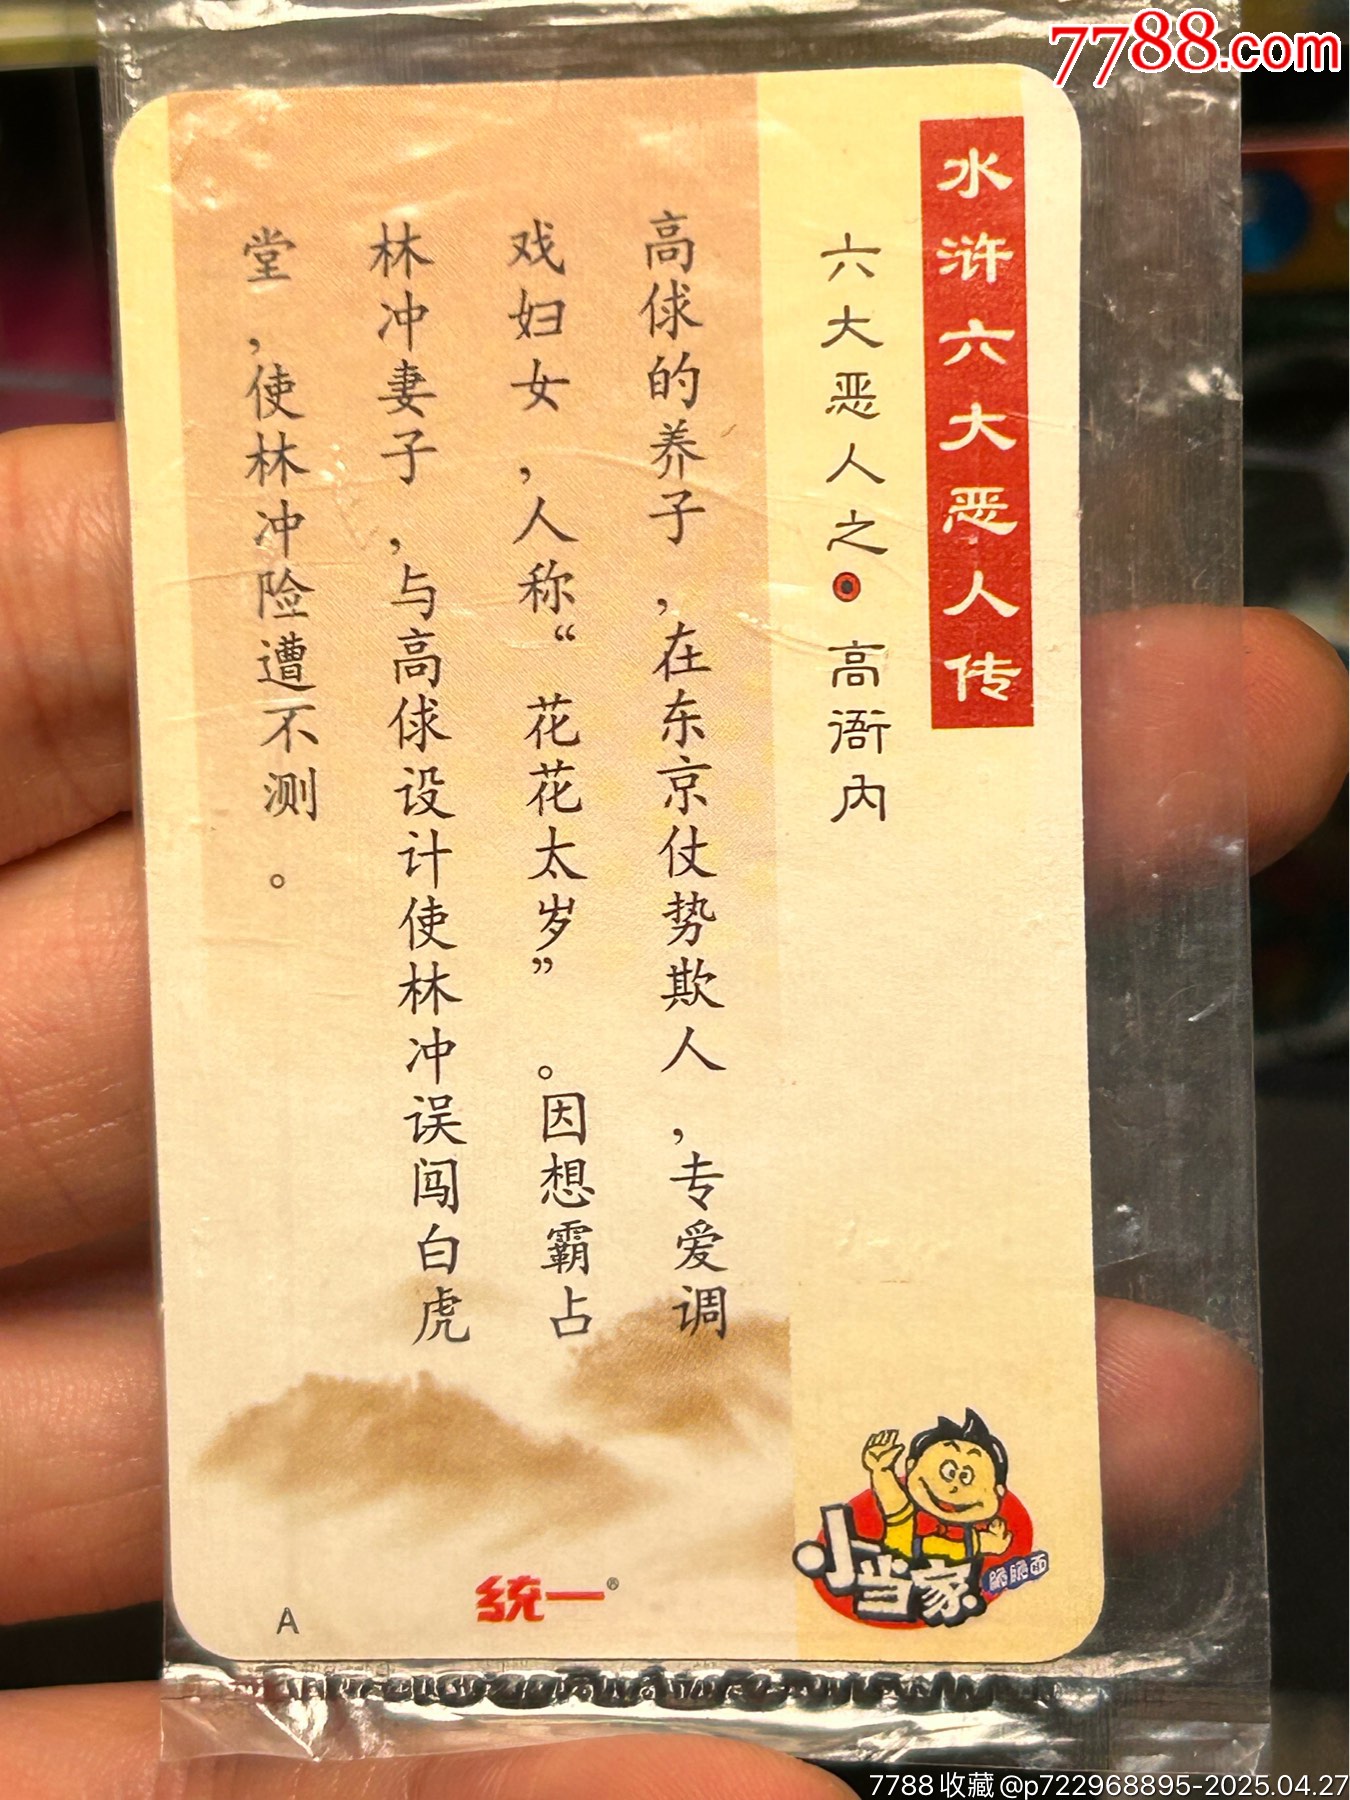 7788.com
水浒六大恶人传
六大恶人之 高衙内
高俅的养子,在东京仗势欺人,专爱调
戏妇女,人称“花花太岁”。因想霸占
林冲妻子,与高俅设计使林冲误闯白虎
堂,使林冲险遭不测。
小当家
脆脆面
統一®
A
7788收藏@p722968895-2025.04.27